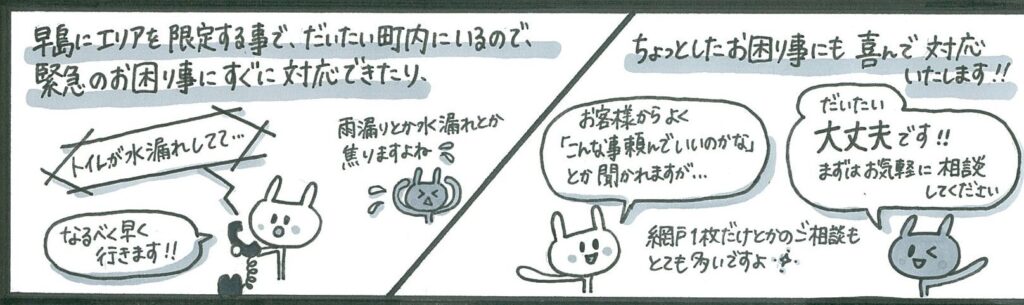 早島にエリアを限定する事で、だいたい町内にいるので、
緊急のお困り事にすぐに対応できたり、
トイレが水漏れしてて…
雨漏りとか水漏れとか
焦りますよね
なるべく早く
行きます!!
ちょっとしたお困り事にも喜んで対応
いたします!!
お客様からよく
「こんな事頼んでいいのかな」
とか聞かれますが…
だいたい
大丈夫です!!
まずはお気軽に相談
してください
網戸1枚だけとかのご相談も
とても多いですよ